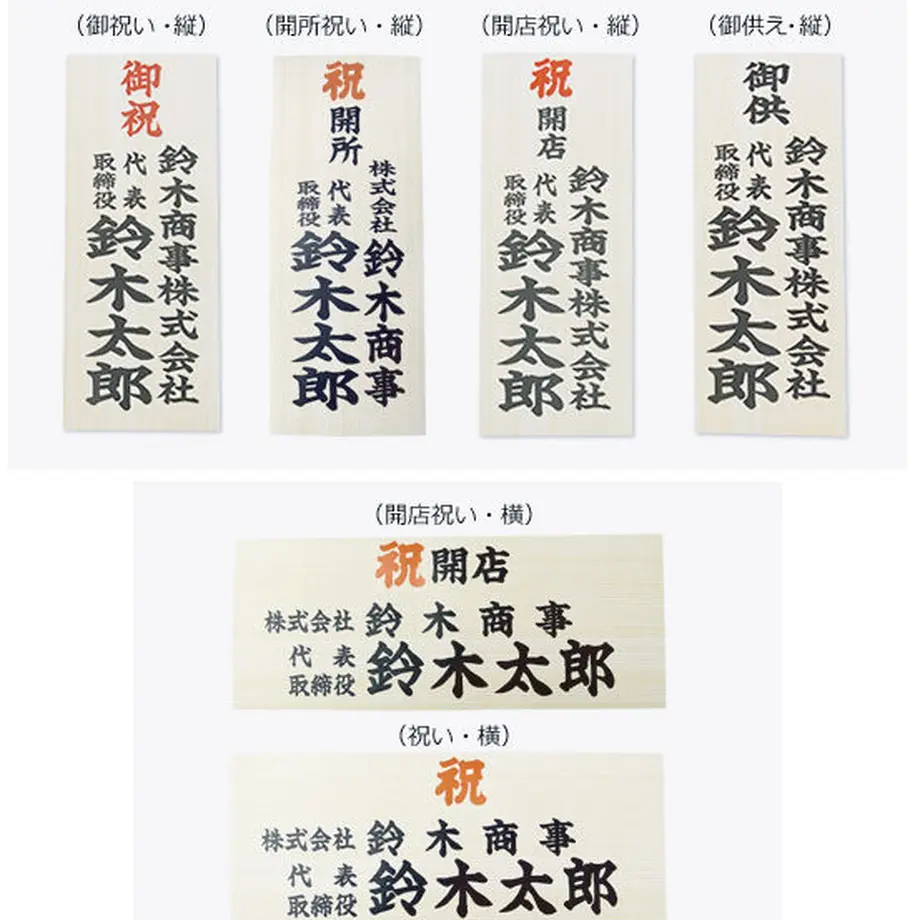 （御祝い・縦）
御祝
鈴木商事株式会社
代表取締役
鈴木太郎
（開所祝い・縦）
祝
開所
株式会社鈴木商事
代表取締役
鈴木太郎
（開店祝い・縦）
祝
開店
鈴木商事株式会社
代表取締役
鈴木太郎
（御供え・縦）
御供
鈴木商事株式会社
代表取締役
鈴木太郎
（開店祝い・横）
祝開店
株式会社 鈴木商事
代表取締役 鈴木太郎
（祝い・横）
祝
株式会社 鈴木商事
代表取締役 鈴木太郎